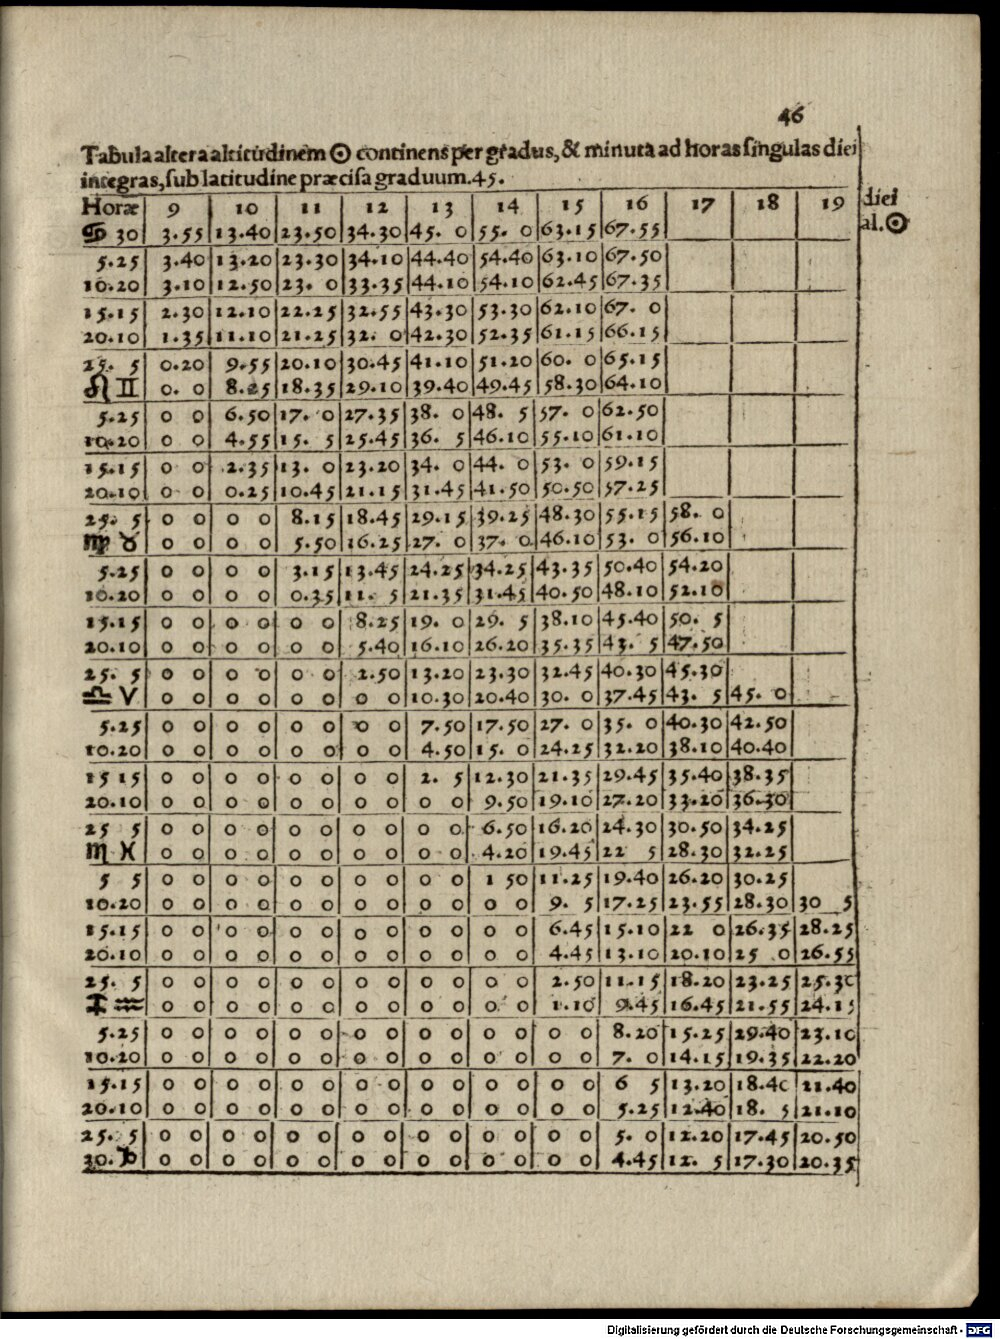 46
Tabula altera altitudinem ☉ continens per gradus, & minuta ad horas singulas diei
integras, sub latitudine præcisa graduum.45.
Horæ 9 10 11 12 13 14 15 16 17 18 19 diei
♋ 30 3.55 13.40 23.50 34.30 45. 0 55. 0 63.15 67.55 al.☉
5.25 3.40 13.20 23.30 34.10 44.40 54.40 63.10 67.50
10.20 3.10 12.50 23. 0 33.35 44.10 54.10 62.45 67.35
15.15 2.30 12.10 22.25 32.55 43.30 53.30 62.10 67. 0
20.10 1.35 11.10 21.25 32. 0 42.30 52.35 61.15 66.15
25. 5 0.20 9.55 20.10 30.45 41.10 51.20 60. 0 65.15
♌ ♊ 0. 0 8.25 18.35 29.10 39.40 49.45 58.30 64.10
5.25 0 0 6.50 17. 0 27.35 38. 0 48. 5 57. 0 62.50
10.20 0 0 4.55 15. 5 25.45 36. 5 46.10 55.10 61.10
15.15 0 0 2.35 13. 0 23.20 34. 0 44. 0 53. 0 59.15
20.10 0 0 0.25 10.45 21.15 31.45 41.50 50.50 57.25
25. 5 0 0 0 0 8.15 18.45 29.15 39.25 48.30 55.15 58. 0
♍ ♉ 0 0 0 0 5.50 16.25 27. 0 37. 0 46.10 53. 0 56.10
5.25 0 0 0 0 3.15 13.45 24.25 34.25 43.35 50.40 54.20
10.20 0 0 0 0 0.35 11. 5 21.35 31.45 40.50 48.10 52.10
15.15 0 0 0 0 0 0 8.25 19. 0 29. 5 38.10 45.40 50. 5
20.10 0 0 0 0 0 0 5.40 16.10 26.20 35.35 43. 5 47.50
25. 5 0 0 0 0 0 0 2.50 13.20 23.30 32.45 40.30 45.30
♎ ♈ 0 0 0 0 0 0 0 0 10.30 20.40 30. 0 37.45 43. 5 45. 0
5.25 0 0 0 0 0 0 0 0 7.50 17.50 27. 0 35. 0 40.30 42.50
10.20 0 0 0 0 0 0 0 0 4.50 15. 0 24.25 32.20 38.10 40.40
15 15 0 0 0 0 0 0 0 0 2. 5 12.30 21.35 29.45 35.40 38.35
20.10 0 0 0 0 0 0 0 0 0 0 9.50 19.10 27.20 33.20 36.30
25 5 0 0 0 0 0 0 0 0 0 0 6.50 16.20 24.30 30.50 34.25
♏ ♓ 0 0 0 0 0 0 0 0 0 0 4.20 19.45 22 5 28.30 32.25
5 5 0 0 0 0 0 0 0 0 0 0 1 50 11.25 19.40 26.20 30.25
10.20 0 0 0 0 0 0 0 0 0 0 0 0 9. 5 17.25 23.55 28.30 30 5
15.15 0 0 0 0 0 0 0 0 0 0 0 0 6.45 15.10 22 0 26.35 28.25
20.10 0 0 0 0 0 0 0 0 0 0 0 0 4.45 13.10 20.10 25 0 26.55
25. 5 0 0 0 0 0 0 0 0 0 0 0 0 2.50 11.15 18.20 23.25 25.30
♐ ♒ 0 0 0 0 0 0 0 0 0 0 0 0 1.10 9.45 16.45 21.55 24.15
5.25 0 0 0 0 0 0 0 0 0 0 0 0 0 0 8.20 15.25 29.40 23.10
10.20 0 0 0 0 0 0 0 0 0 0 0 0 0 0 7. 0 14.15 19.35 22.20
15.15 0 0 0 0 0 0 0 0 0 0 0 0 0 0 6 5 13.20 18.40 21.40
20.10 0 0 0 0 0 0 0 0 0 0 0 0 0 0 5.25 12.40 18. 5 21.10
25. 5 0 0 0 0 0 0 0 0 0 0 0 0 0 0 5. 0 12.20 17.45 20.50
30.♑ 0 0 0 0 0 0 0 0 0 0 0 0 0 0 4.45 12. 5 17.30 20.35
Digitalisierung gefördert durch die Deutsche Forschungsgemeinschaft - DFG